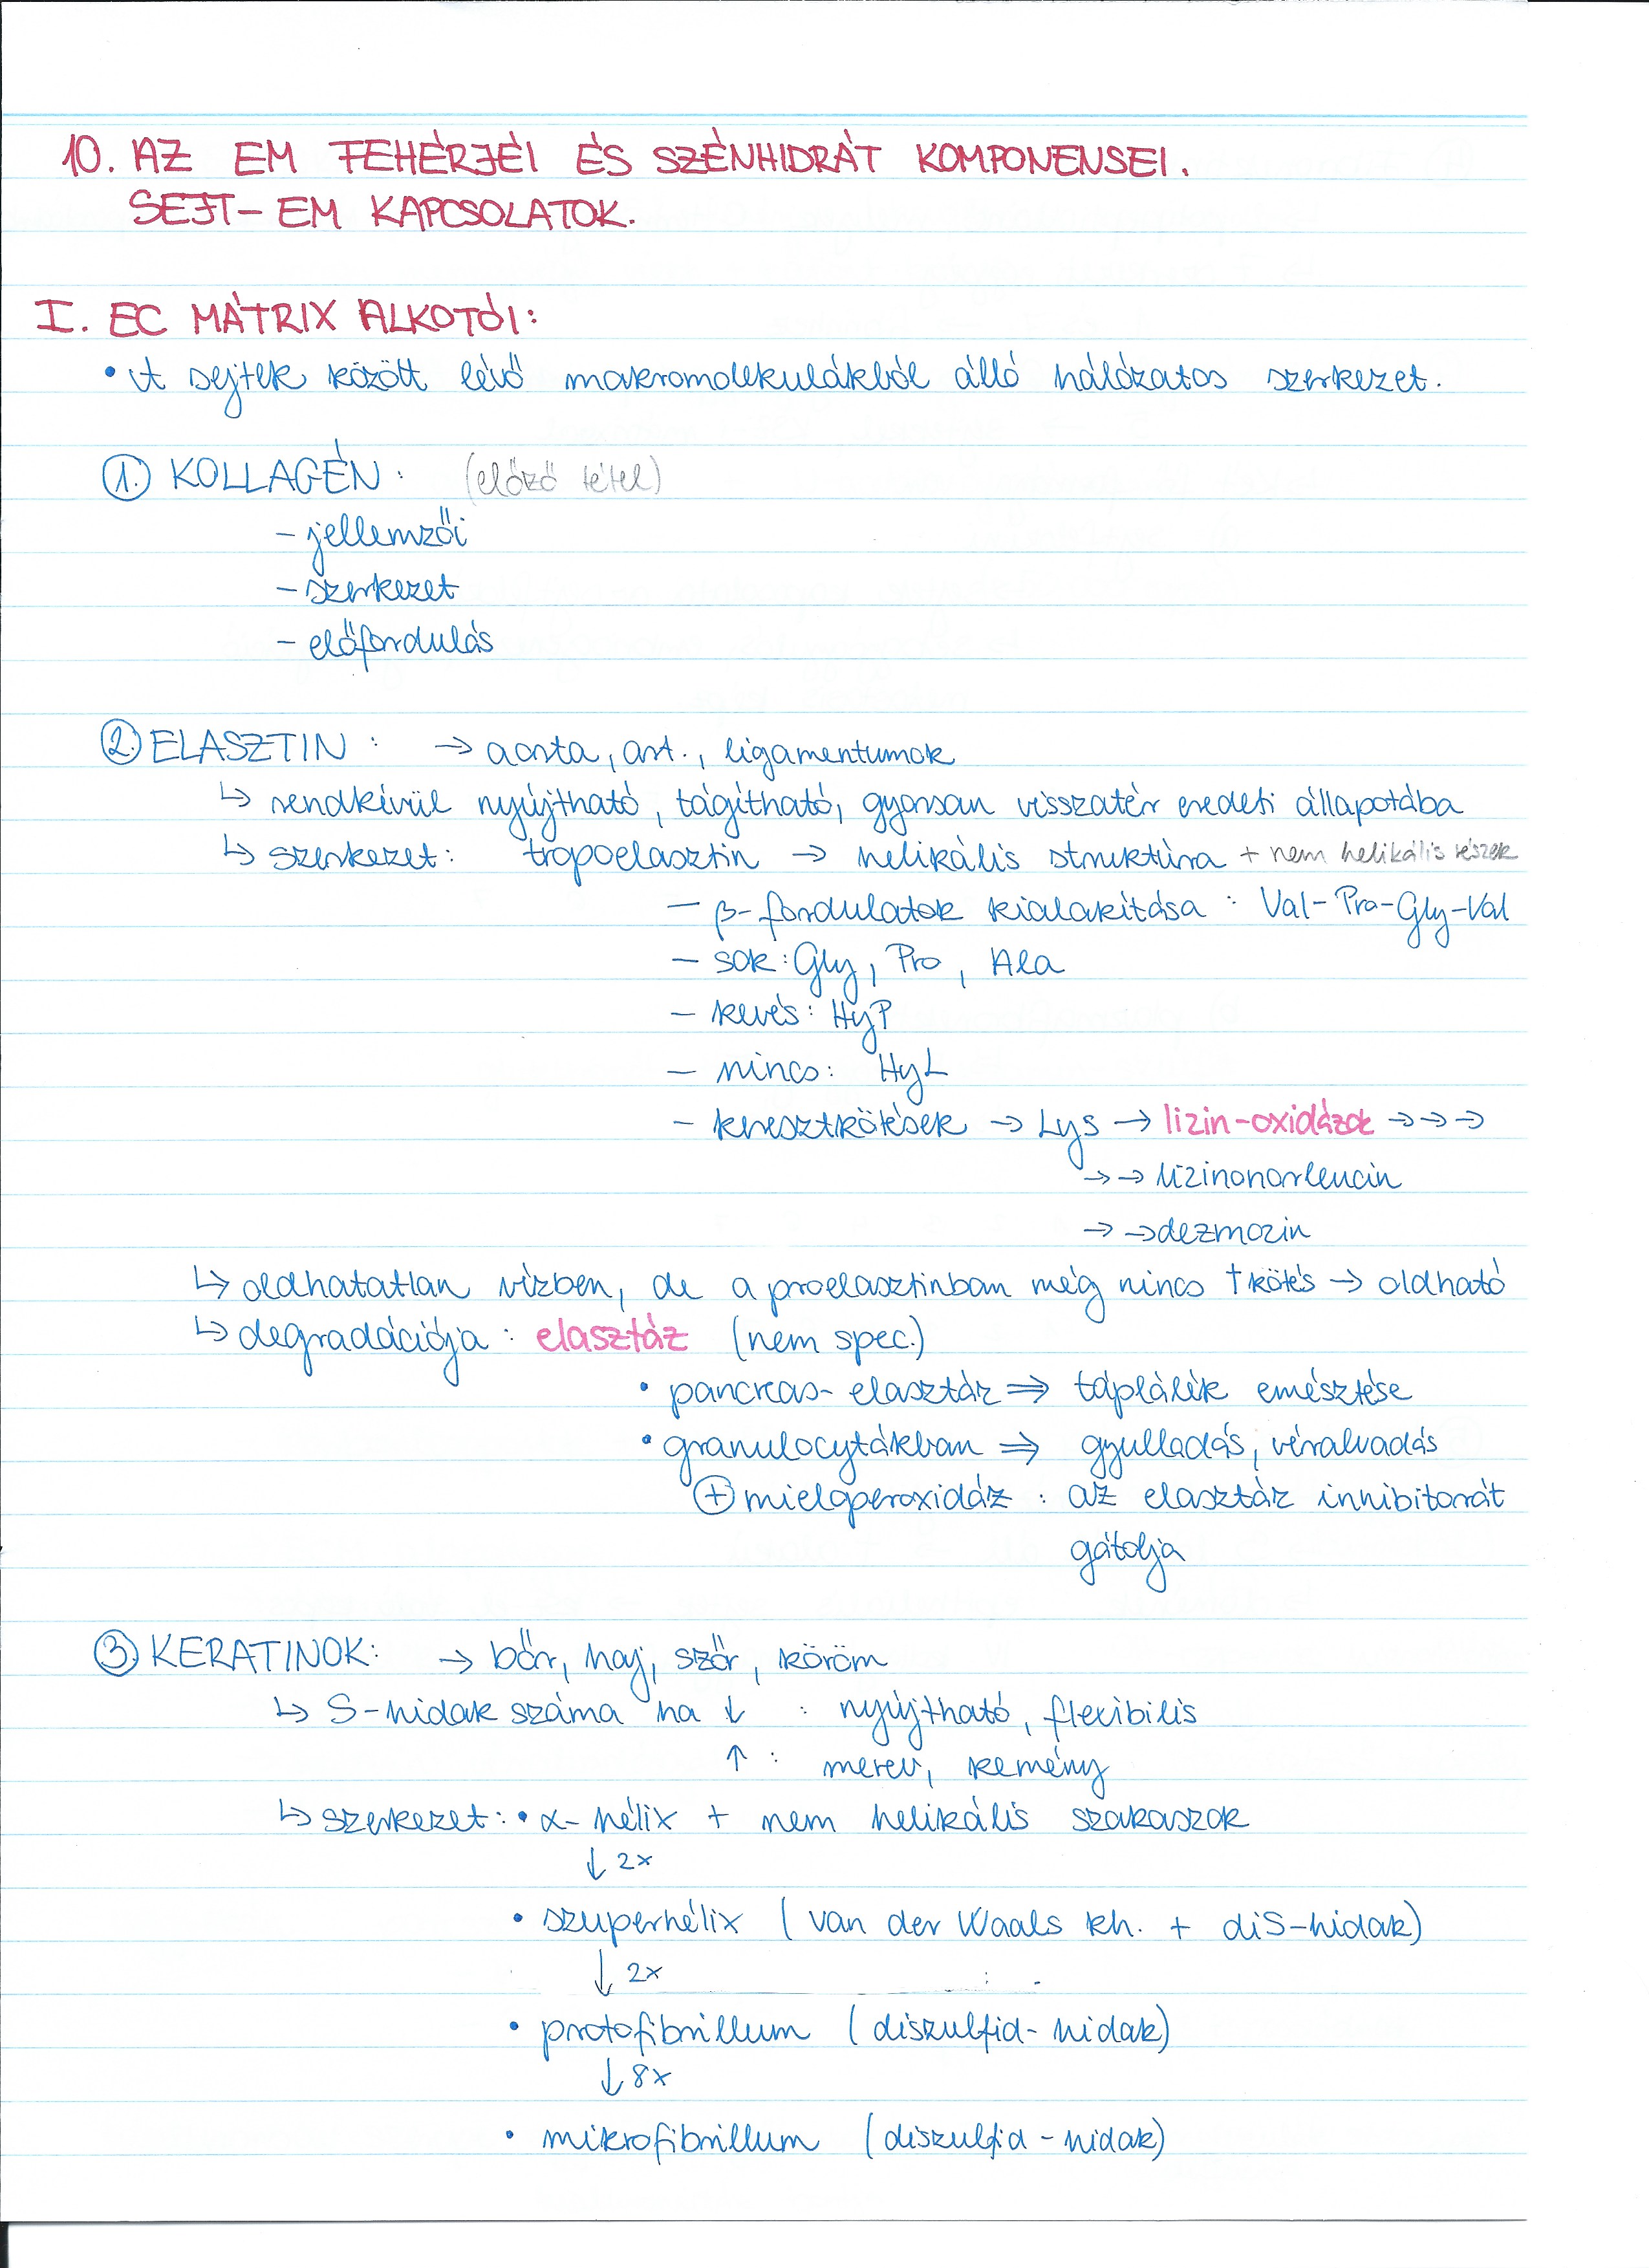 10. AZ EM FEHÉRJÉI ÉS SZÉNHIDRÁT KOMPONENSEI.
SEJT-EM KAPCSOLATOK.
I. EC MÁTRIX ALKOTÓI:
• A sejtek között lévő makromolekulákból álló hálózatos szerkezet.
1. KOLLAGÉN: (előző tétel)
- jellemzői
- szerkezet
- előfordulás
2. ELASZTIN: → aorta, art., ligamentumok
↳ rendkívül nyújtható, tágítható, gyorsan visszatér eredeti állapotába
↳ szerkezet: tropoelasztin → helikális struktúra + nem helikális részek
- β-fordulatok kialakítása: Val-Pro-Gly-Val
- sok: Gly, Pro, Ala
- kevés: HyP
- nincs: HyL
- keresztkötések → Lys → lizin-oxidázok →→→
→→ lizinonorleucin
→→ dezmozin
↳ oldhatatlan vízben, de a proelasztinban még nincs † kötés → oldható
↳ degradációja: elasztáz (nem spec.)
• pancreas-elasztáz ⇒ táplálék emésztése
• granulocytákban ⇒ gyulladás, véralvadás
⊕ mieloperoxidáz: az elasztáz inhibitorát
gátolja
3. KERATINOK: → bőr, haj, szőr, köröm
↳ S-hidak száma ha ↓ : nyújtható, flexibilis
↑ : merev, kemény
↳ szerkezet: • α-hélix + nem helikális szakaszok
↓ 2x
• szuperhélix (van der Waals kh. + diS-hidak)
↓ 2x
• protofibrillum (diszulfid-hidak)
↓ 8x
• mikrofibrillum (diszulfid-hidak)